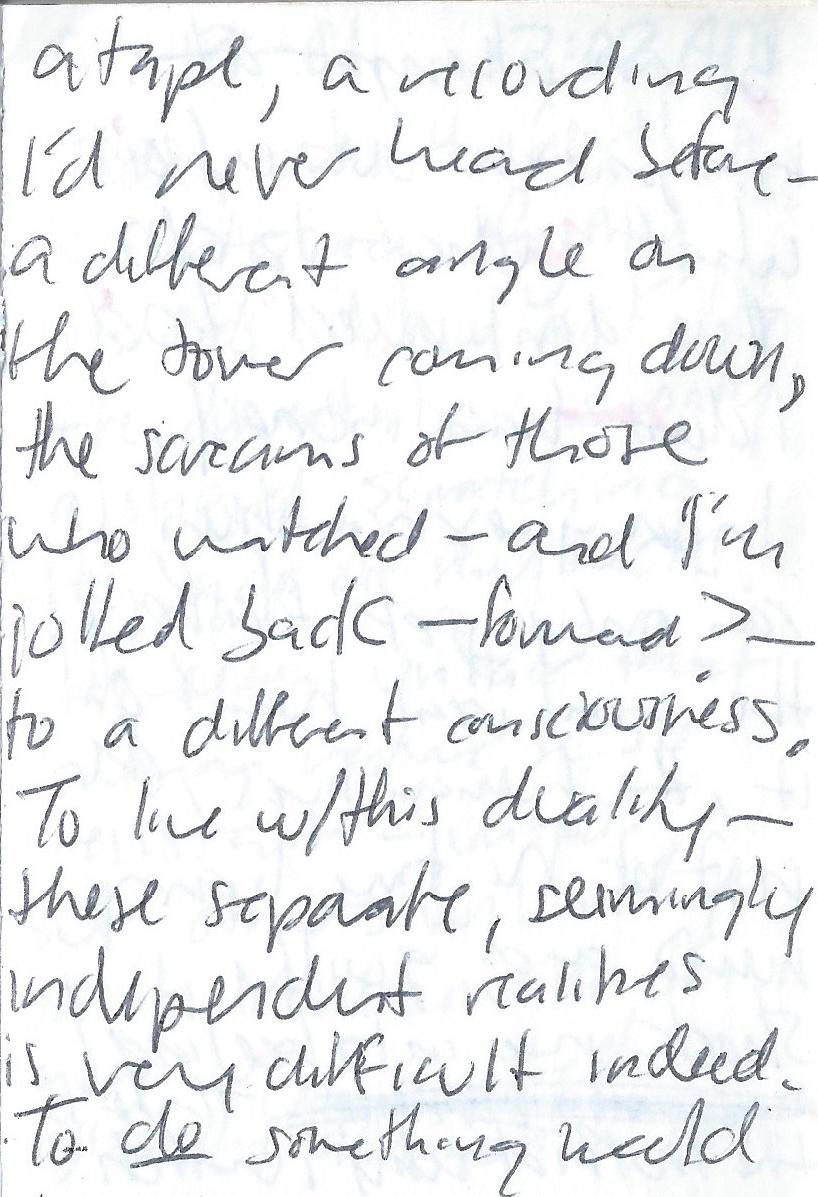 a tape, a recording
I'd never heard before –
a different angle on
the tower coming down,
the screams of those
who watched – and I'm
jolted back – forward > –
to a different consciousness.
To live w/this duality –
these separate, seemingly
independent realities
is very difficult indeed.
To do something would